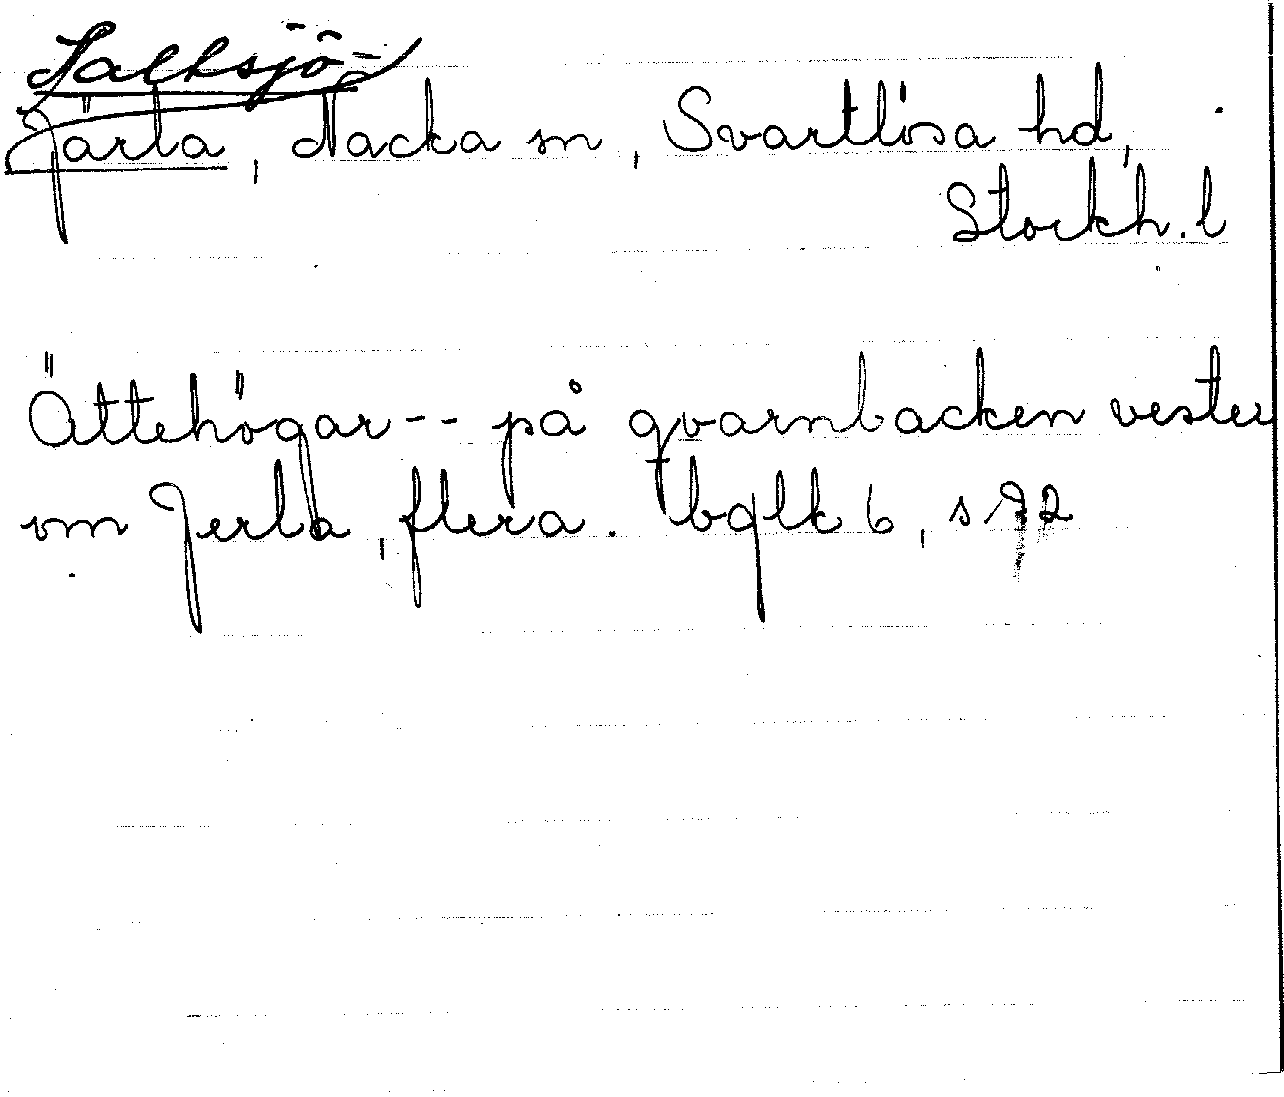 Saltsjö-
Järla, Nacka sn, Svartlösa hd,
Stockh. l
Ättehögar -- på qvarnbacken vester
om Jerla, flera. bglk 6, s 72